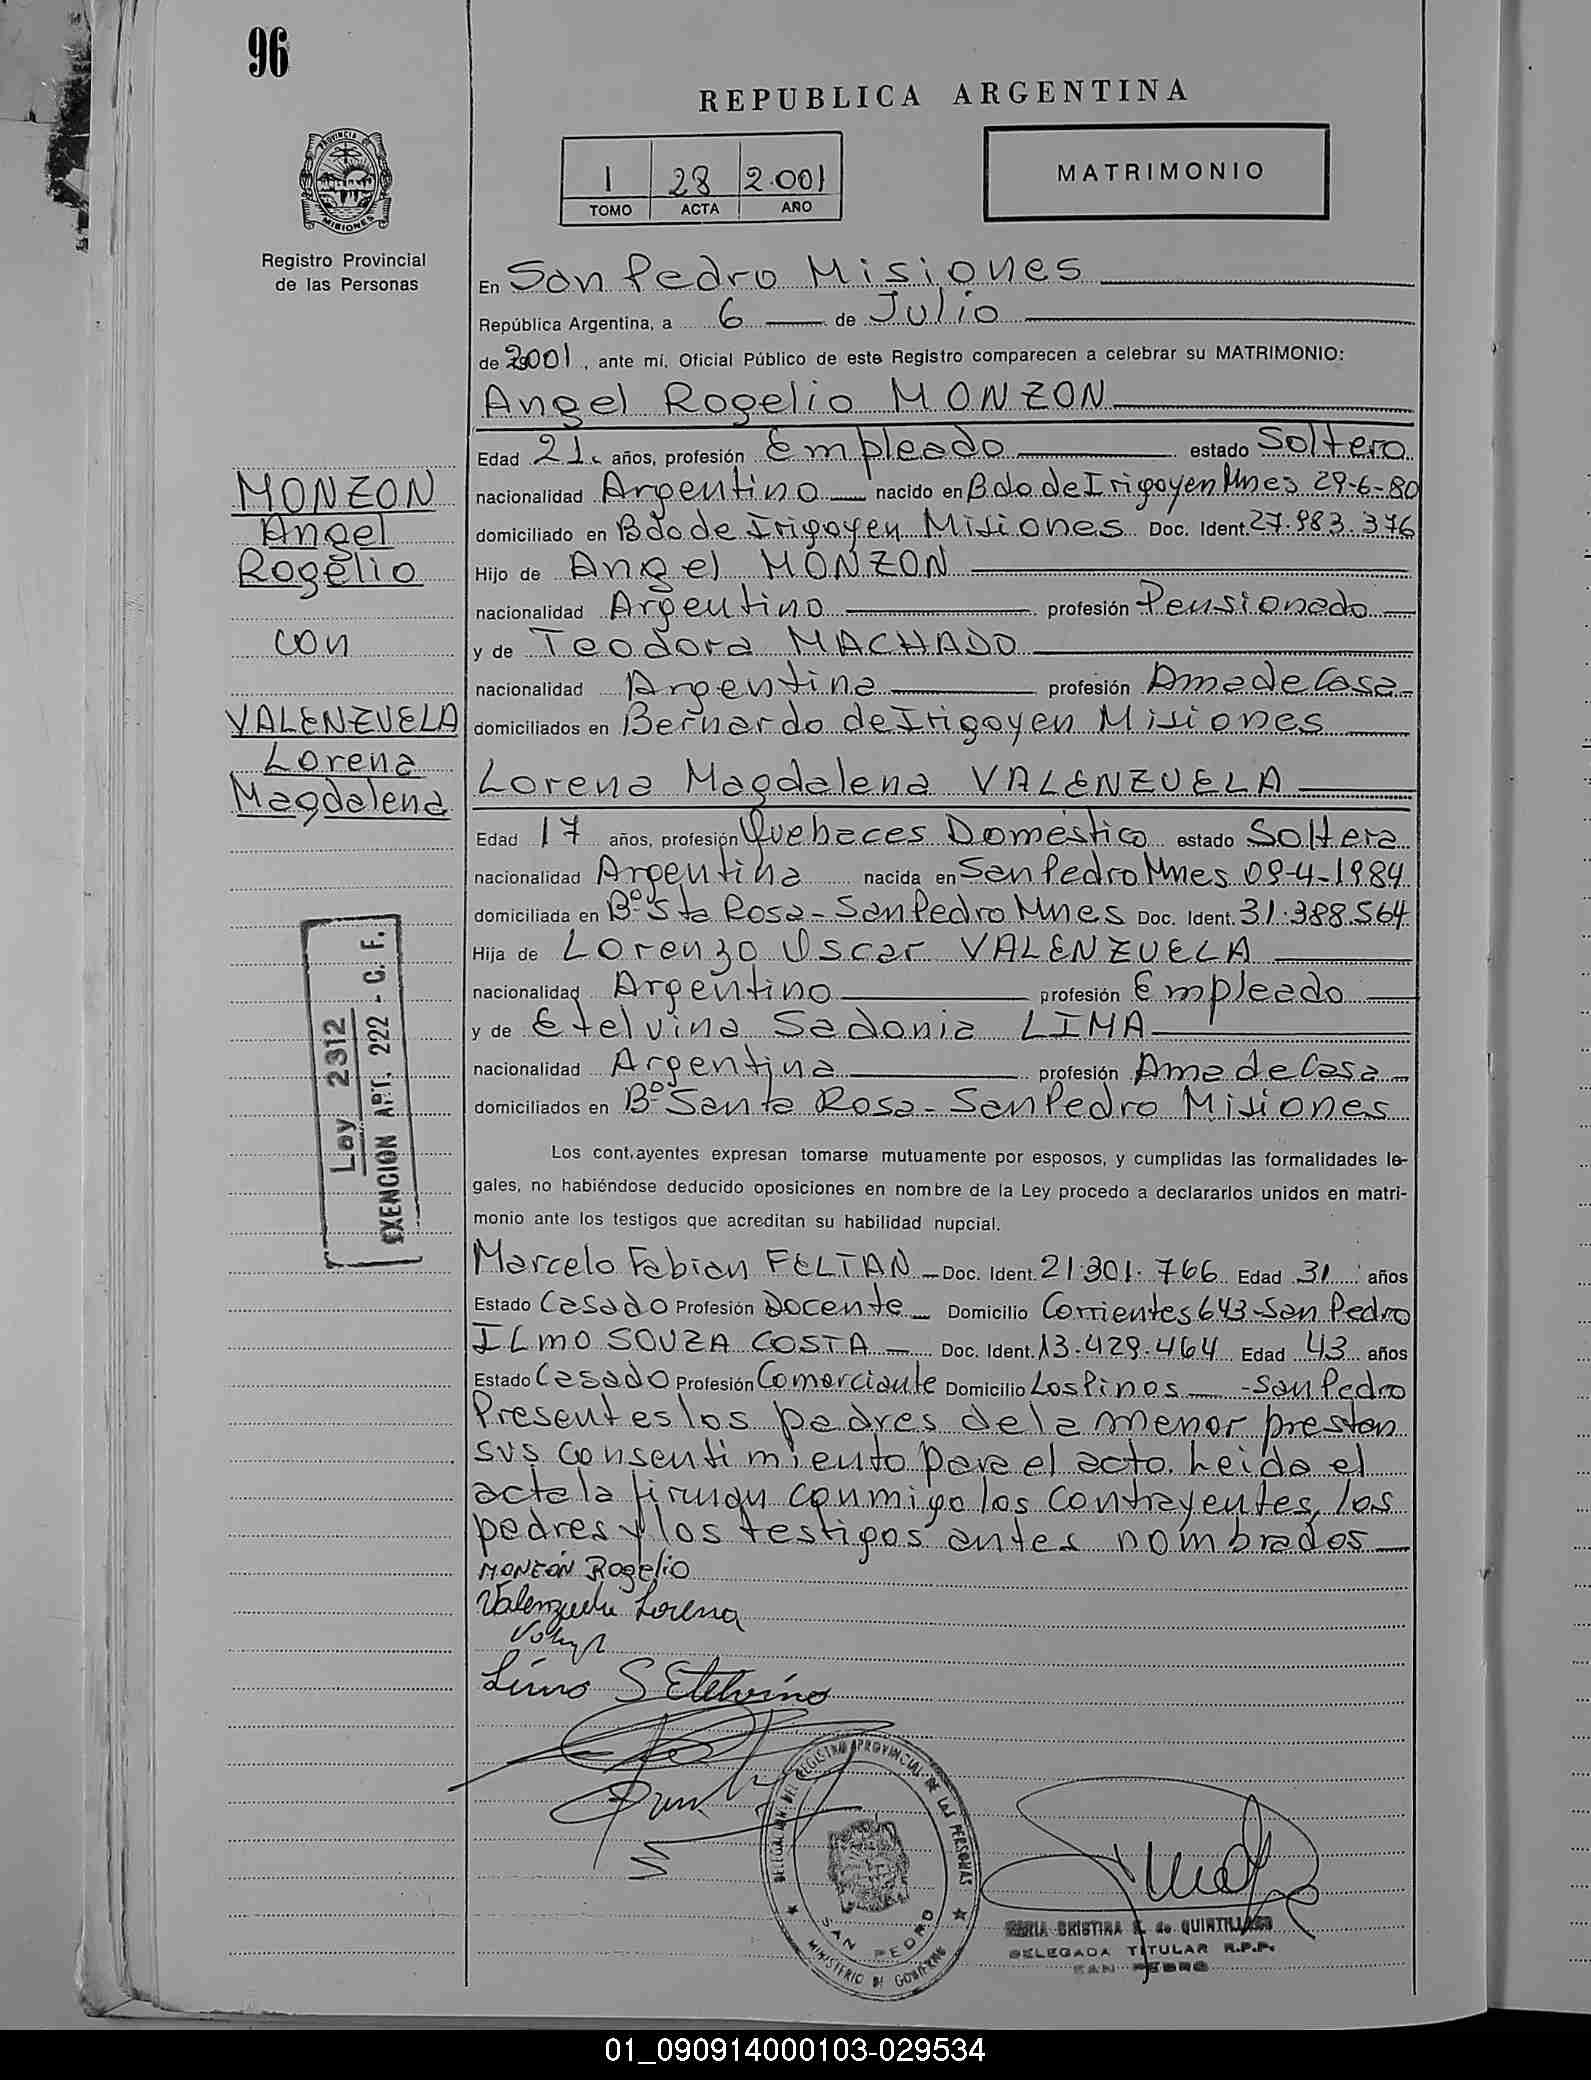 96
REPUBLICA ARGENTINA
PROVINCIA DE
MISIONES
Registro Provincial
de las Personas
1 28 2.001
TOMO ACTA AÑO
MATRIMONIO
En San Pedro Misiones
República Argentina, a 6 de Julio
de 2001, ante mí, Oficial Público de este Registro comparecen a celebrar su MATRIMONIO:
Angel Rogelio MONZON
Edad 21. años, profesión Empleado estado Soltero
nacionalidad Argentino nacido en Bdo de Irigoyen Mnes 29-6-80
domiciliado en Bdo de Irigoyen Misiones Doc. Ident. 27.983.376
Hijo de Angel MONZON
nacionalidad Argentino profesión Pensionado
y de Teodora MACHADO
nacionalidad Argentina profesión Ama de Casa
domiciliados en Bernardo de Irigoyen Misiones
MONZON
Angel
Rogelio
con
VALENZUELA
Lorena
Magdalena
Lorena Magdalena VALENZUELA
Edad 17 años, profesión Quehaces Doméstico estado Soltera
nacionalidad Argentina nacida en San Pedro Mnes 09-4-1984
domiciliada en Bº Sta Rosa - San Pedro Mnes Doc. Ident. 31.388.564
Hija de Lorenzo Oscar VALENZUELA
nacionalidad Argentino profesión Empleado
y de Etelvina Sadonia LIMA
nacionalidad Argentina profesión Ama de Casa
domiciliados en Bº Santa Rosa - San Pedro Misiones
Ley 2312
EXENCION ART. 222 - C. F.
Los cont.ayentes expresan tomarse mutuamente por esposos, y cumplidas las formalidades le-
gales, no habiéndose deducido oposiciones en nombre de la Ley procedo a declararlos unidos en matri-
monio ante los testigos que acreditan su habilidad nupcial.
Marcelo Fabian FELTAN Doc. Ident. 21.301.766 Edad 31 años
Estado Casado Profesión Docente Domicilio Corrientes 643-San Pedro
ILMO SOUZA COSTA Doc. Ident. 13.429.464 Edad 43 años
Estado Casado Profesión Comerciante Domicilio Los Pinos - San Pedro
Presentes los padres de la menor prestan
sus consentimiento para el acto. Leida el
acta la firman conmigo los contrayentes, los
padres y los testigos antes nombrados
MONZON Rogelio
Valenzuela Lorena
Lima S Etelvina
DELEGACION DEL REGISTRO PROVINCIAL DE LAS PERSONAS
SAN PEDRO
MINISTERIO DE GOBIERNO
MARIA CRISTINA de QUINTILLANO
DELEGADA TITULAR R.P.P.
SAN PEDRO
01_090914000103-029534